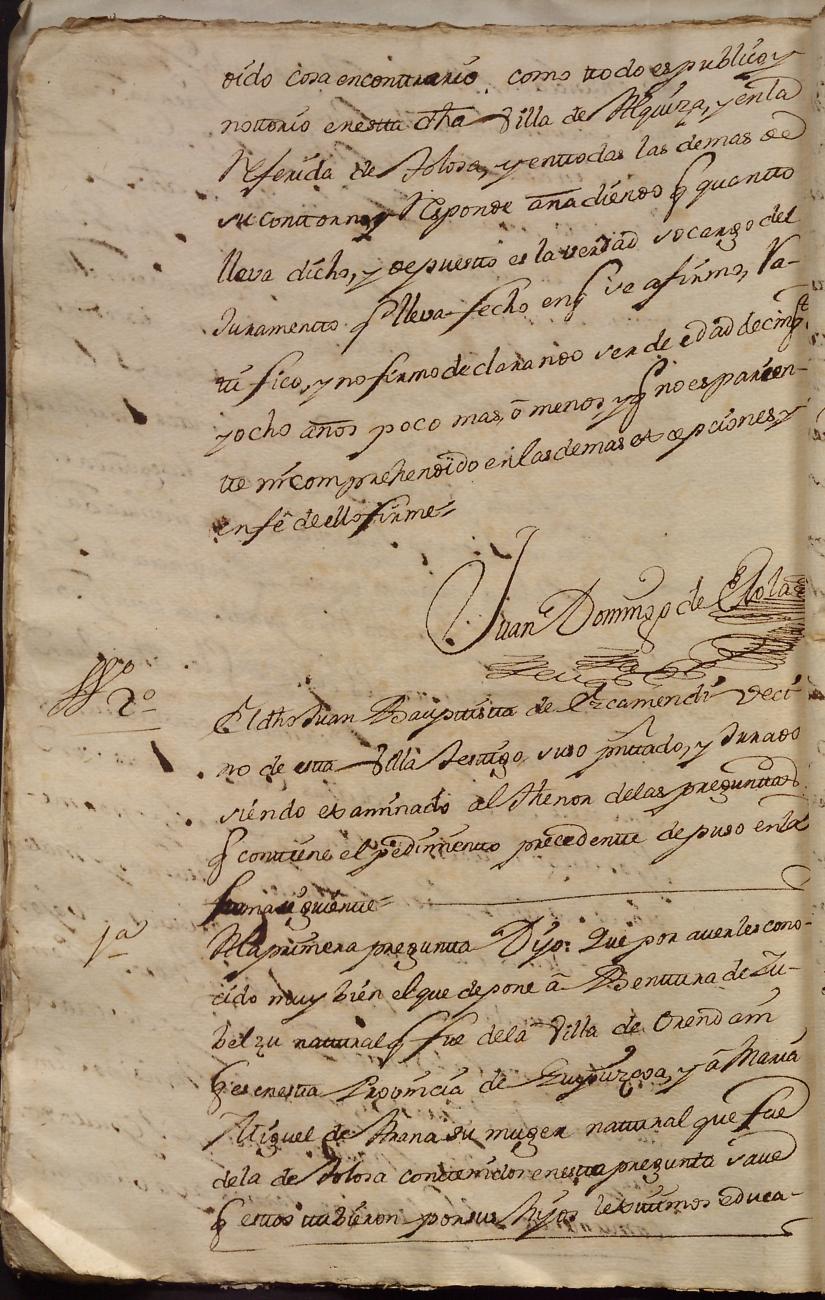 oido cosa encontrario, como ttodo es publico y
nottorio en estta dha Villa de Alquiza, y en la
Referida de Tolosa, y en ttodas las demas de
su conttorno y Responde añadiendo q quantto
lleva dicho, y depuestto es la verdad so cargo del
Juramentto q lleva fecho en q se afirmo, Ra-
ttifico, y no firmo declarando ser de edad de cinqta
y ocho años poco mas, ô menos y q no es parien-
tte ni comprehendido en las demas excepciones, y
en fê de ello firme=
Juan Domingo de Elola
Tgo 2º
El dho Juan Bapttistta de Ezcamendi veci-
no de estta Villa Testigo, suso pnttado, y Jurado
siendo examinado al thenor de las pregunttas
q conttiene el pedimientto precedentte depuso en la
forma siguientte=
1ª
A la primera preguntta Dijo: Que por averles cono-
cido muy bien el que depone â Benttura de Zu-
belzu natural q fue de la Villa de Orendain
q es en estta Provincia de Guipuzcoa, y â Maria
Miguel de Arana su muger natural que fue
de la de Tolosa contenidos en estta pregunta save
q esttos ttubieron por sus hijos lexittimos educa-